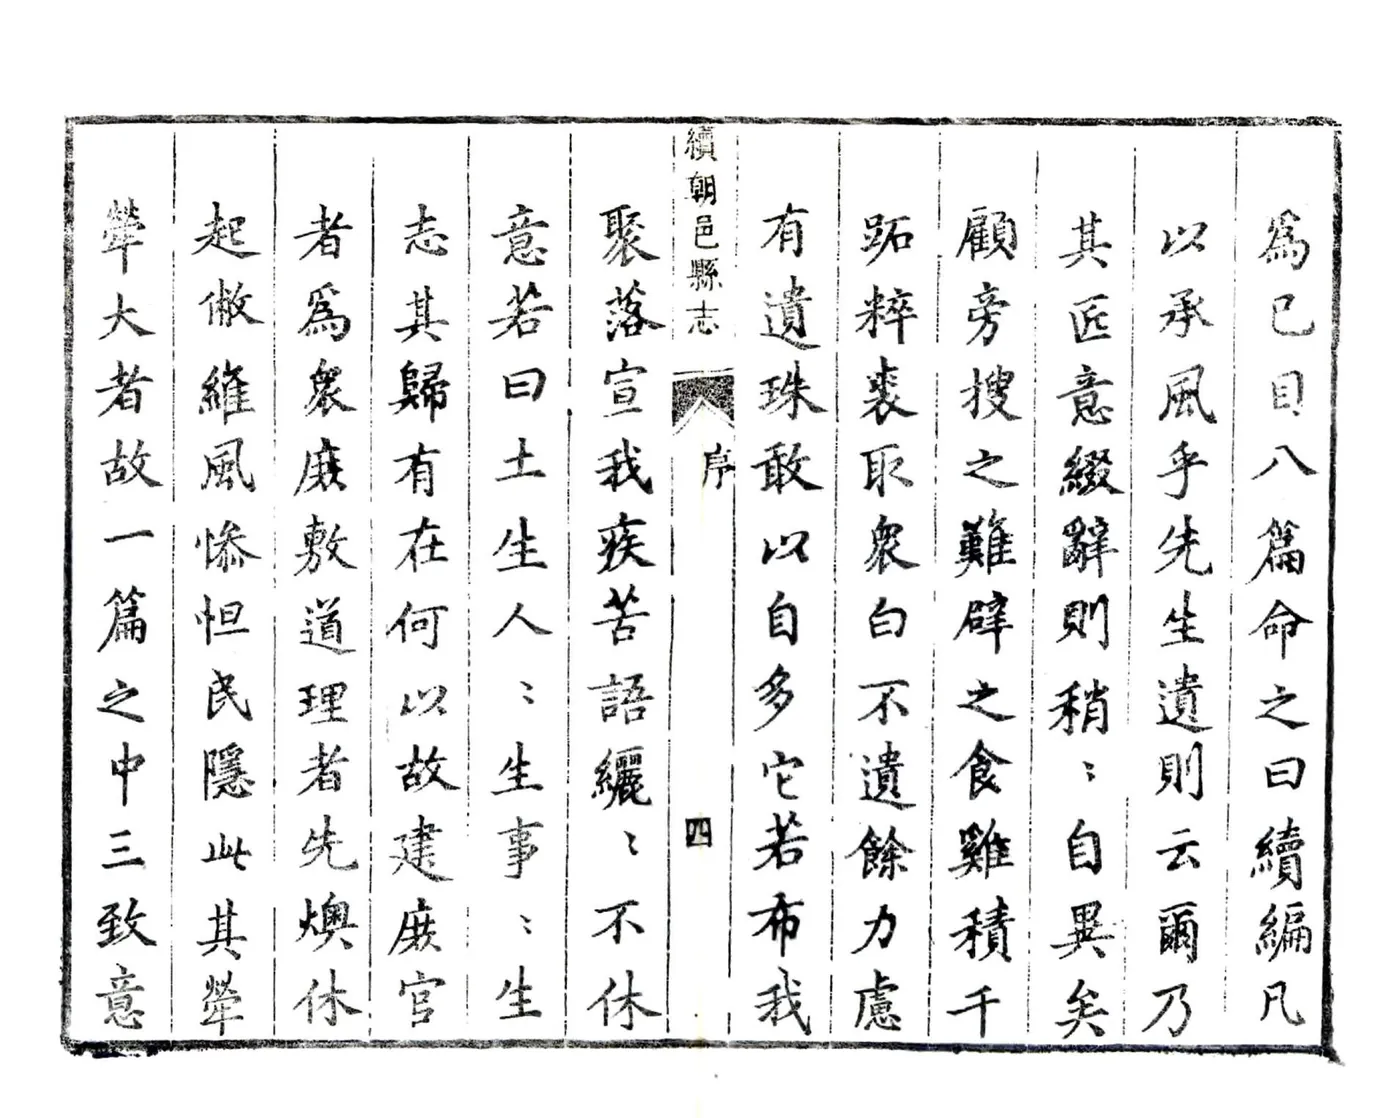 為已目八篇命之曰續編凡
以承風乎先生遺則云爾乃
其匠意綴辭則稍〻自異矣
顧旁搜之難辟之食雞積千
跖粹裘取衆白不遺餘力慮
有遺珠敢以自多它若布我
續朝邑縣志
序
四
聚落宣我疾苦語纚〻不休
意若曰土生人〻生事〻生
志其歸有在何以故建庶官
者為衆庶敷道理者先燠休
起敝維風慘怛民隱此其犖
犖大者故一篇之中三致意